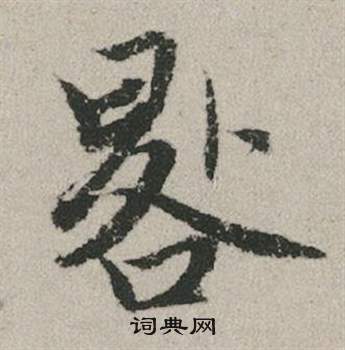 晷
词典网